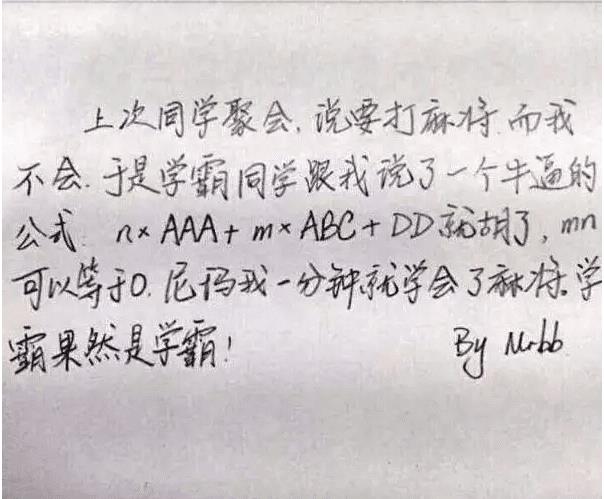 上次同学聚会,说要打麻将.而我
不会.于是学霸同学跟我说了一个牛逼的
公式: n×AAA+m×ABC+DD就胡了,mn
可以等于0.尼玛我一分钟就学会了麻将.学
霸果然是学霸!
By Mrbb